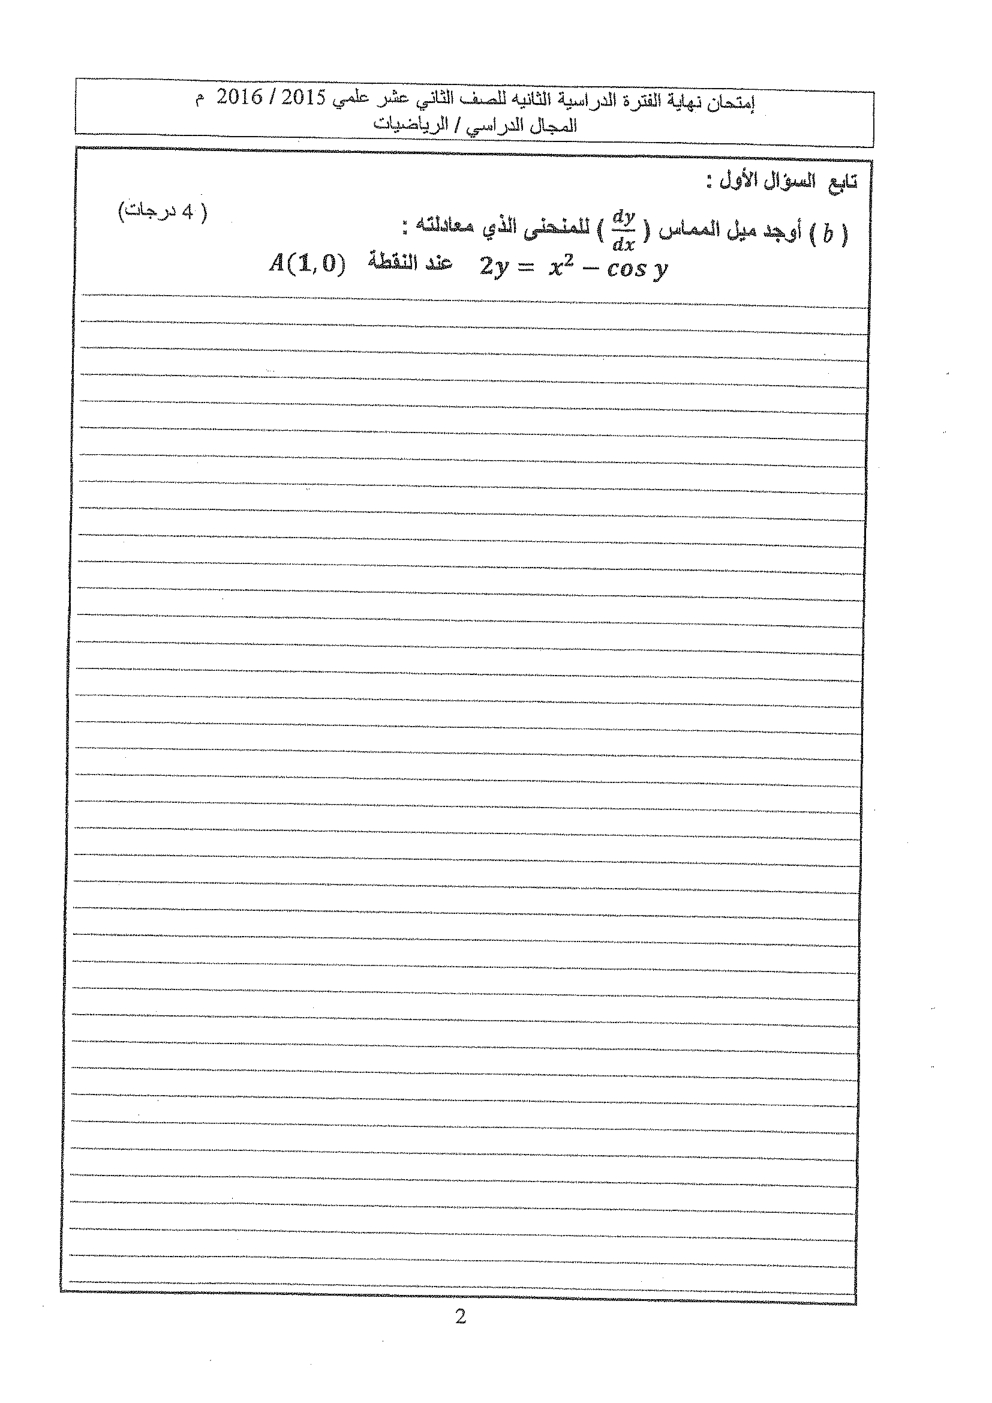 إمتحان نهاية الفترة الدراسية الثانيه للصف الثاني عشر علمي 2015 / 2016 م
المجال الدراسي / الرياضيات
تابع السؤال الأول :
( b ) أوجد ميل المماس ( dy/dx ) للمنحنى الذي معادلته : ( 4 درجات)
2y = x² − cos y عند النقطة A(1, 0)
2